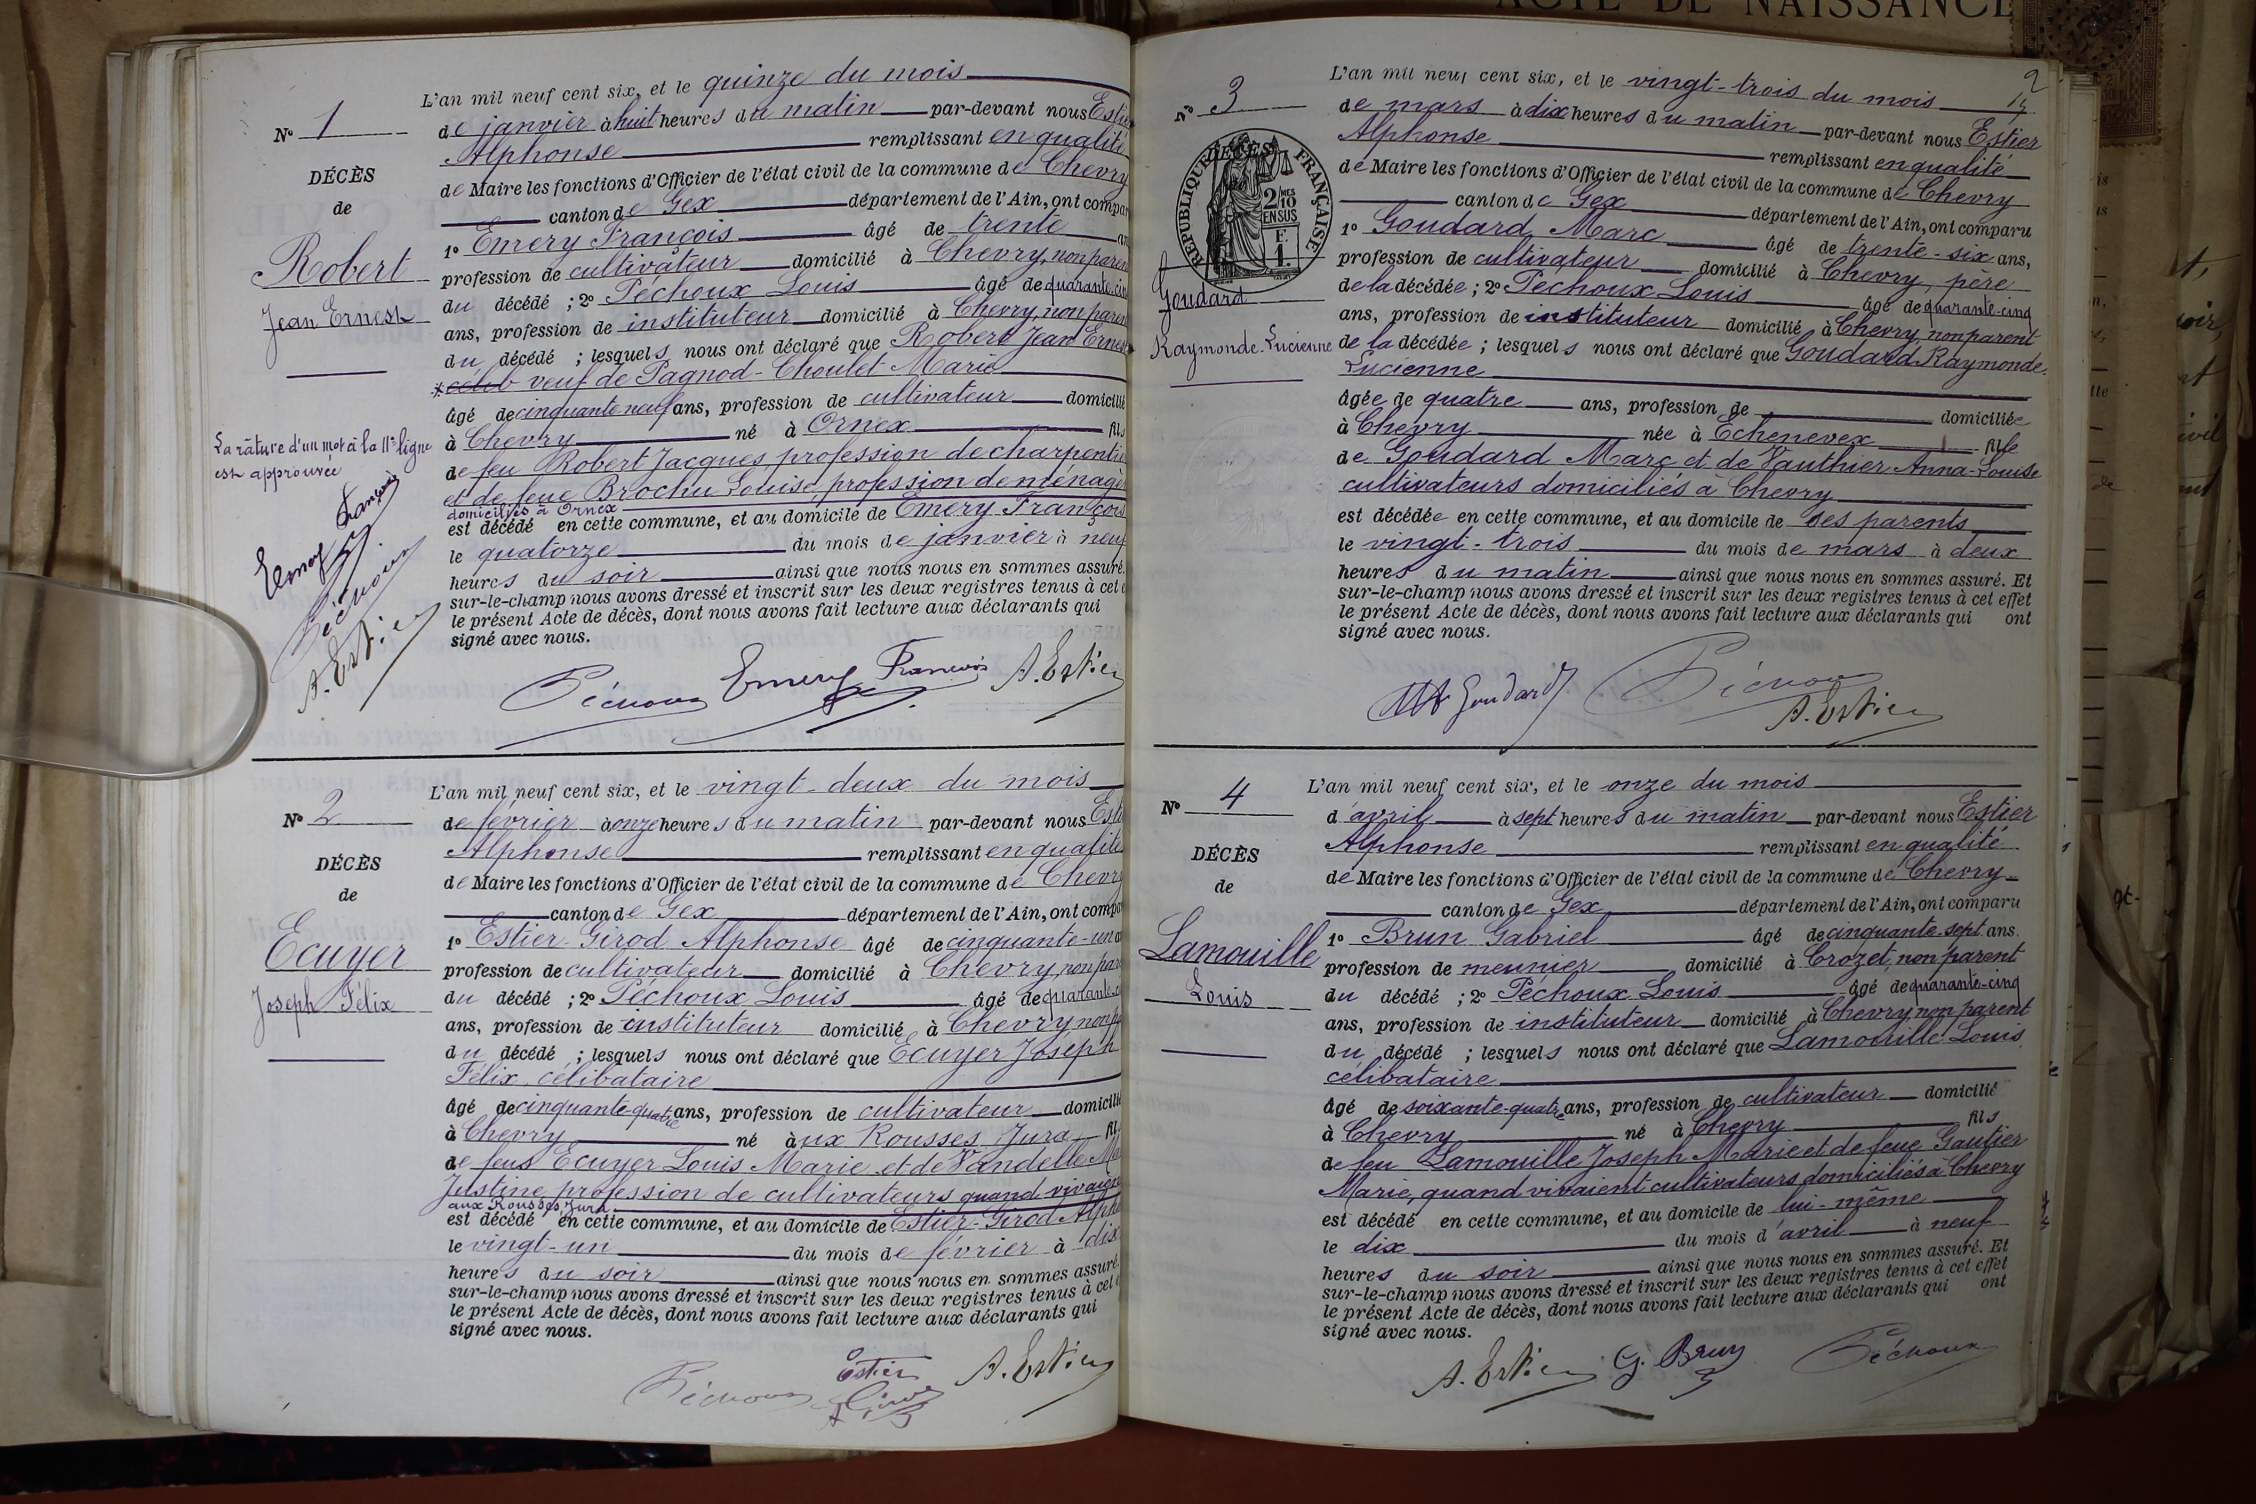 ACTE DE NAISSANCE
L'an mil neuf cent six, et le quinze du mois
N° 1
de janvier à huit heures du matin par-devant nous Estier
Alphonse remplissant en qualité
DÉCÈS
de Maire les fonctions d'Officier de l'état civil de la commune de Chevry
de
canton de Gex département de l'Ain, ont compar
1° Emery François âgé de trente an
Robert
profession de cultivateur domicilié à Chevry, non paren
du décédé ; 2° Péchoux Louis âgé de quarante-cin
Jean Ernest
ans, profession de instituteur domicilié à Chevry, non paren
du décédé ; lesquels nous ont déclaré que Robert Jean Ernest
veuf de Pagnod-Choulet Marie
âgé de cinquante neuf ans, profession de cultivateur domicilié
La râture d'un mot à la 11e ligne
à Chevry né à Ornex fils
est approuvée
de feu Robert Jacques, profession de charpentie
et de feue Brochu Louise, profession de ménagè
domiciliés à Ornex
est décédé en cette commune, et au domicile de Emery François
le quatorze du mois de janvier à neuf
heures du soir ainsi que nous nous en sommes assuré.
sur-le-champ nous avons dressé et inscrit sur les deux registres tenus à cet e
le présent Acte de décès, dont nous avons fait lecture aux déclarants qui
signé avec nous.
Emery François
Péchoux
A. Estier
Péchoux Emery François A. Estier
L'an mil neuf cent six, et le vingt-deux du mois
N° 2
de février à onze heures du matin par-devant nous Esti
Alphonse remplissant en qualité
DÉCÈS
de Maire les fonctions d'Officier de l'état civil de la commune de Chevry
de
canton de Gex département de l'Ain, ont compa
Ecuyer
1° Estier-Girod Alphonse âgé de cinquante-un a
profession de cultivateur domicilié à Chevry, non pare
Joseph Félix
du décédé ; 2° Péchoux Louis âgé de quarante-c
ans, profession de instituteur domicilié à Chevry non pa
du décédé ; lesquels nous ont déclaré que Ecuyer Joseph
Félix, célibataire
âgé de cinquante-quatre ans, profession de cultivateur domicilié
à Chevry né à ux Rousses, Jura fils
de feus Ecuyer Louis Marie et de Vandelle Ma
Justine, profession de cultivateurs quand vivaient
aux Rousses, Jura
est décédé en cette commune, et au domicile de Estier-Girod Alpho
le vingt-un du mois de février à dix
heures du soir ainsi que nous nous en sommes assuré.
sur-le-champ nous avons dressé et inscrit sur les deux registres tenus à cet e
le présent Acte de décès, dont nous avons fait lecture aux déclarants qui
signé avec nous.
Péchoux Estier A. Estier
2
L'an mil neuf cent six, et le vingt-trois du mois
N° 3
de mars à dix heures du matin par-devant nous Estier
Alphonse remplissant en qualité
DÉCÈS
RÉPUBLIQUE FRANÇAISE
2/10 MES EN SUS
F. 1.
de Maire les fonctions d'Officier de l'état civil de la commune de Chevry
canton de Gex département de l'Ain, ont comparu
1° Goudard Marc âgé de trente-six ans,
profession de cultivateur domicilié à Chevry, père
Goudard
de la décédée ; 2° Péchoux Louis âgé de quarante-cinq
ans, profession de instituteur domicilié à Chevry, non parent
Raymonde-Lucienne
de la décédée ; lesquels nous ont déclaré que Goudard Raymonde-
Lucienne
âgée de quatre ans, profession de domiciliée
à Chevry née à Echenevex fille
de Goudard Marc et de Vauthier Anna-Louise
cultivateurs domiciliés à Chevry
est décédée en cette commune, et au domicile de ses parents
le vingt-trois du mois de mars à deux
heures du matin ainsi que nous nous en sommes assuré. Et
sur-le-champ nous avons dressé et inscrit sur les deux registres tenus à cet effet
le présent Acte de décès, dont nous avons fait lecture aux déclarants qui ont
signé avec nous.
Goudard Péchoux
A. Estier
L'an mil neuf cent six, et le onze du mois
N° 4
d'avril à sept heures du matin par-devant nous Estier
Alphonse remplissant en qualité
DÉCÈS
de Maire les fonctions d'Officier de l'état civil de la commune de Chevry
de
canton de Gex département de l'Ain, ont comparu
Lamouille
1° Brun Gabriel âgé de cinquante-sept ans.
profession de meunier domicilié à Crozet, non parent
Louis
du décédé ; 2° Péchoux Louis âgé de quarante-cinq
ans, profession de instituteur domicilié à Chevry non parent
du décédé ; lesquels nous ont déclaré que Lamouille Louis,
célibataire
âgé de soixante-quatre ans, profession de cultivateur domicilié
à Chevry né à Chevry fils
de feu Lamouille Joseph Marie et de feue Gautier
Marie, quand vivaient cultivateurs domiciliés à Chevry
est décédé en cette commune, et au domicile de lui-même
le dix du mois d'avril à neuf
heures du soir ainsi que nous nous en sommes assuré. Et
sur-le-champ nous avons dressé et inscrit sur les deux registres tenus à cet effet
le présent Acte de décès, dont nous avons fait lecture aux déclarants qui ont
signé avec nous.
A. Estier G. Brun Péchoux